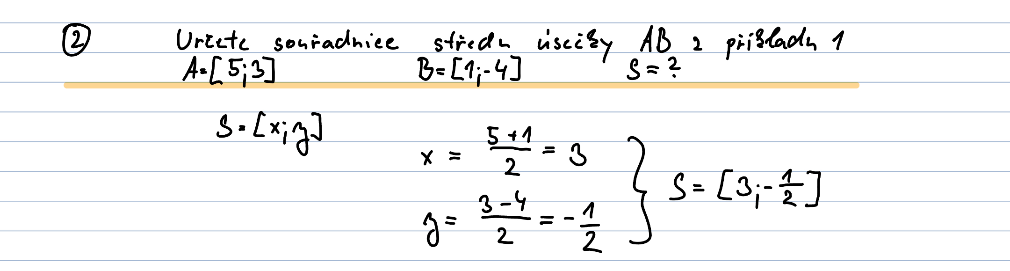 ② Určete souřadnice středu úsečky AB z příkladu 1
A=[5;3] B=[1;-4] S=?
S=[x;y]
x = \frac{5+1}{2} = 3
y = \frac{3-4}{2} = -\frac{1}{2}
} S = [3;-\frac{1}{2}]